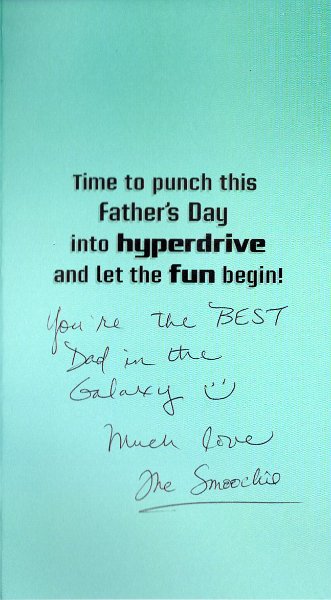 Time to punch this
Father's Day
into hyperdrive
and let the fun begin!
You're the BEST
Dad in the
Galaxy
Much love
The Smoochie